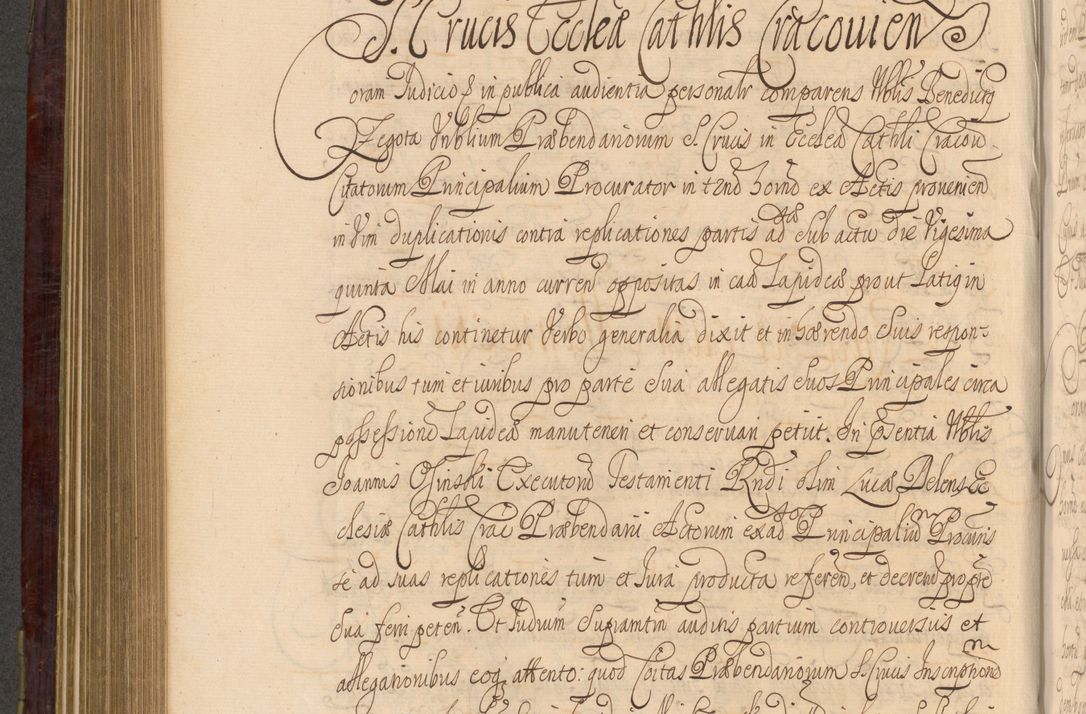 S. Crucis Eccleæ Cathlis Cracovien
oram Judicio & in publica audientia personalr comparens Nblis Benedictq
Zegota Vnblium Præbendariorum S. Crucis in Ecclea Cathli Cracov
Citatorum Principalium Procurator in tend hornd ex Actis provenien
in Vim duplicationis contra replicationes partis adtæ Sub actu die Vigesima
quinta Mai in anno curren oppositas in caa Lapideæ prout Latig in
Actis his continetur Verbo generalia dixit et inhærendo Suis respon-
sionibus tum et iuribus pro parte Sua allegatis Suos Principales circa
possessione Lapideæ manuteneri et conservari petiit. In Psentia Nblis
Joannis Osinski Executoris Testamenti Rndi olim Lucæ Belens Ec
clesiæ Cathlis Crac Præbendarii Actorum ex adso Principaliu Procuris
se ad suas replicationes tum et Jura producta referen, et decerend pro pte
Sua fieri peten. Et Judium Supramtm auditis partium controversiis et
allegationibus eoq attento: quod Coitas Præbendariorum S. Crucis Inscriptionem